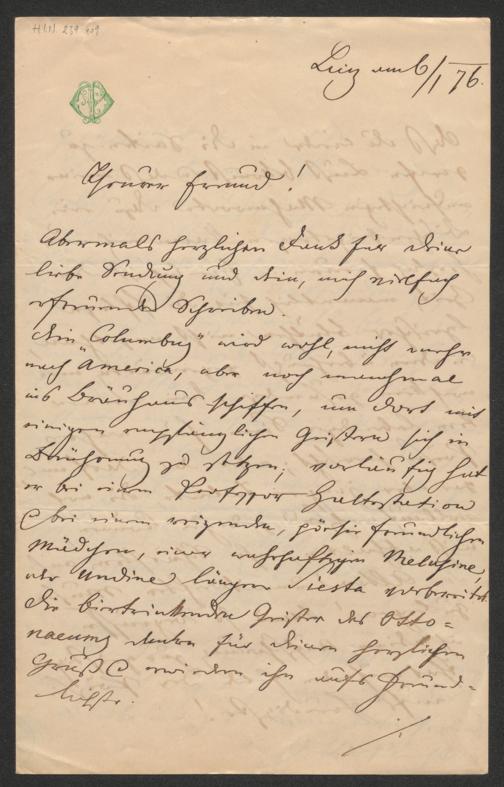 H.I.N. 239.409
Linz am 6/1 76.
Theurer Freund!
Abermals herzlichen Dank für deine
liebe Sendung und dein, mich vielfach
erfreuendes Schreiben.
„Ein Columbus“ wird wohl, nicht mehr
nach "America, aber noch manchmal
ins Bräuhaus schiffen, um dort mit
einigen empfänglichen Geistern sich in
Berührung zu setzen; vorläufig hat
er bei einem Professor Haltestation
bei einem reizenden, poesiefreundlichen
Mädchen, einer wahrhaftigen Melusine,
oder Undine längere Siesta vorbereitet.
Die biertrinkenden Geister des Otto-
naeums danken für deinen herzlichen
Gruß & erwiedern ihn aufs Freund-
lichste.
./.